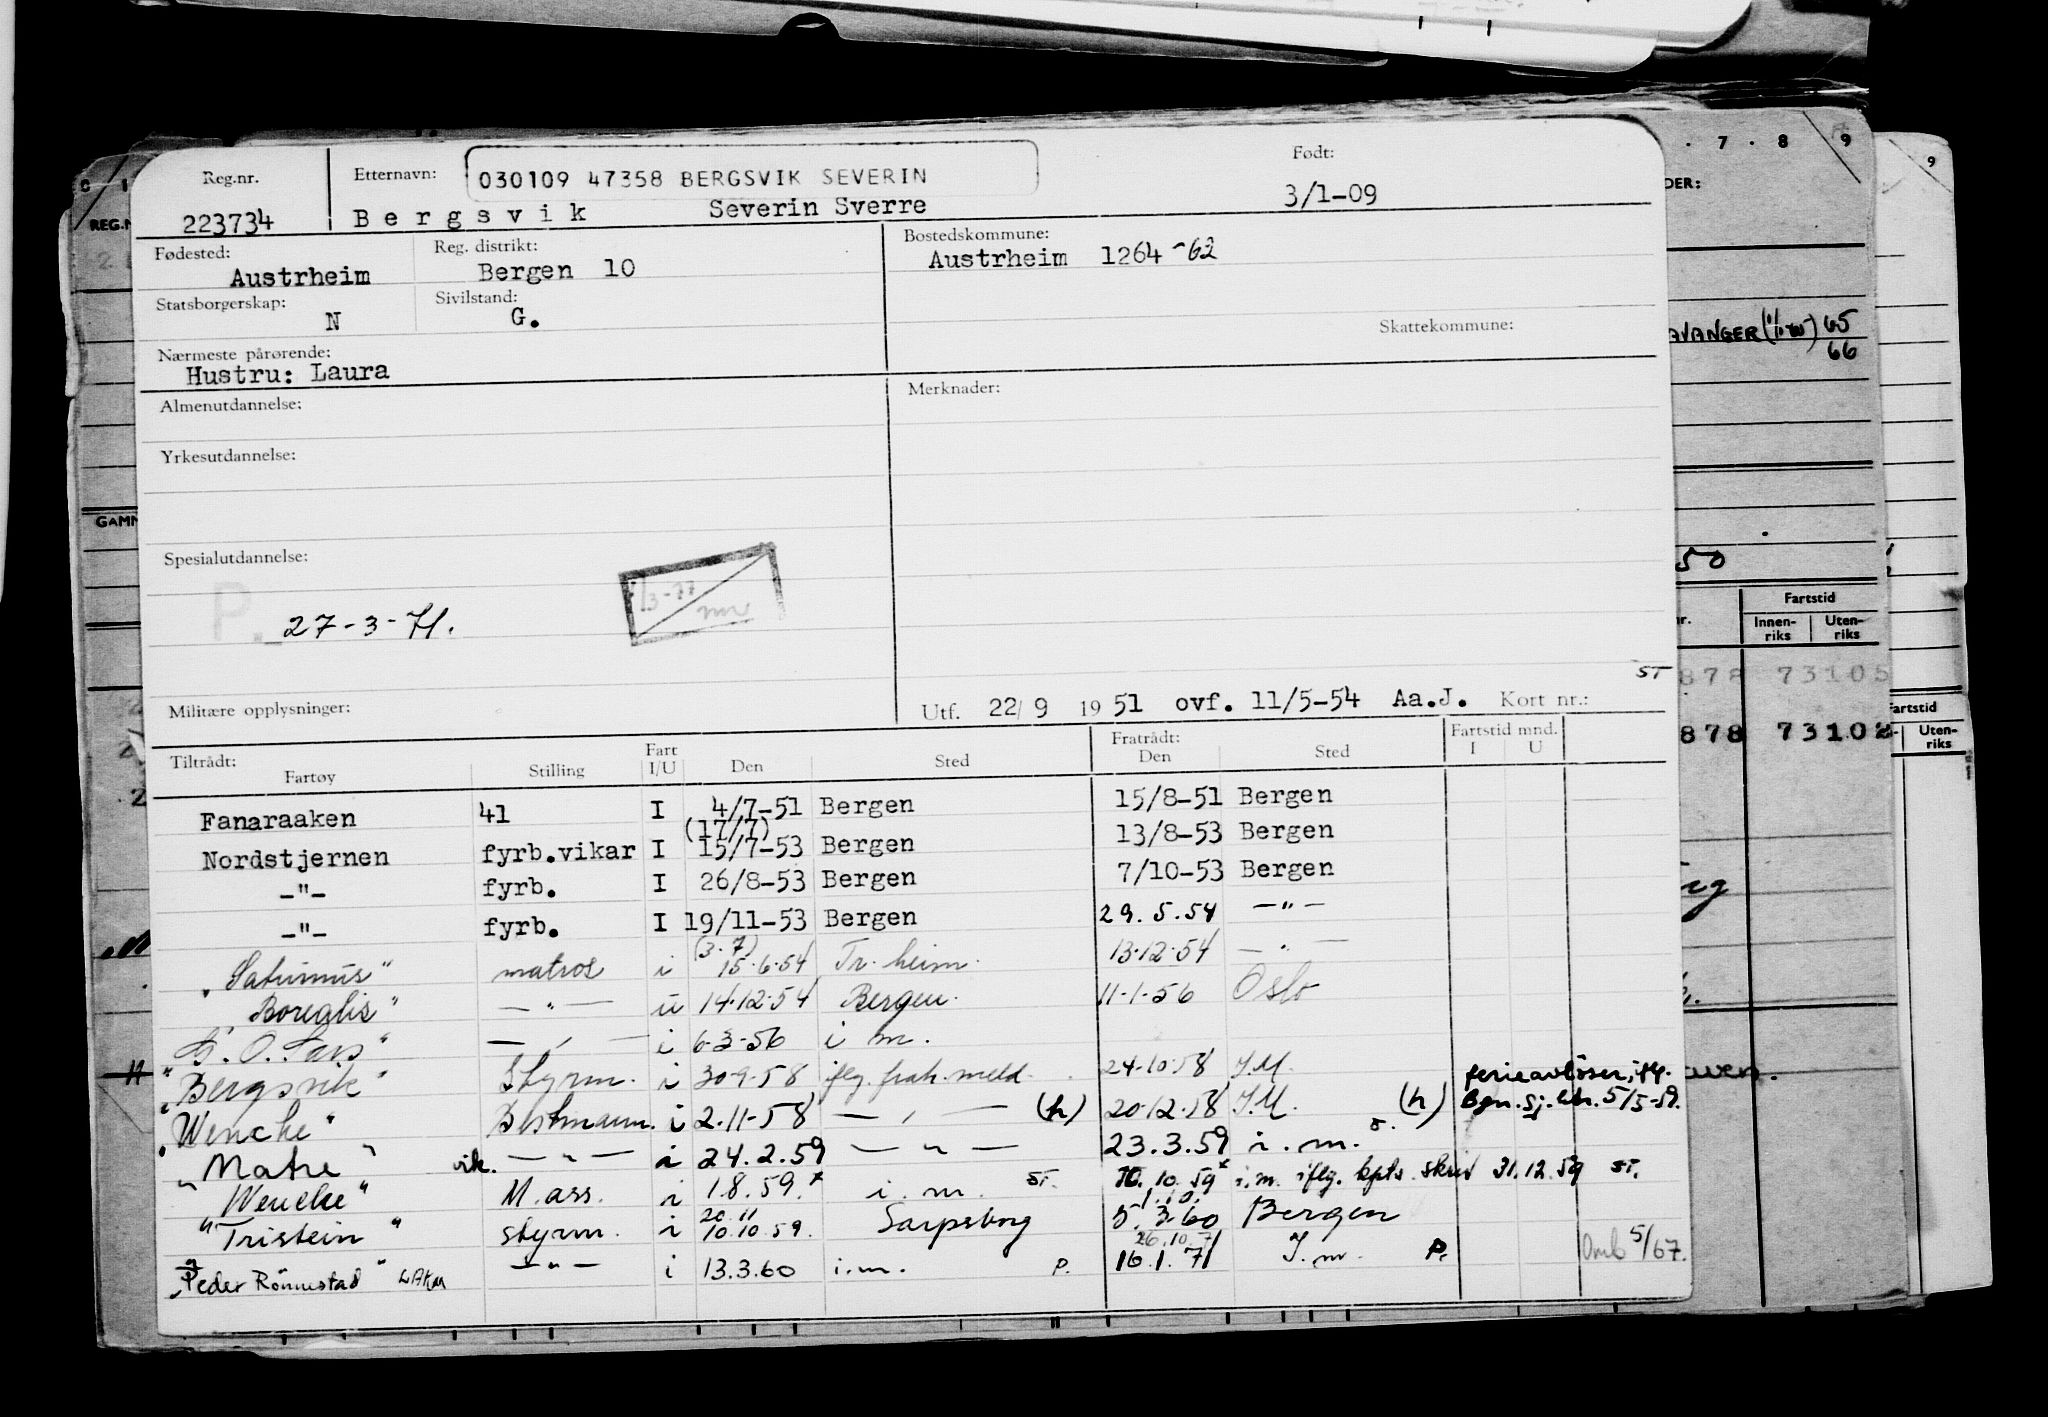 Reg.nr. Etternavn: 030109 47358 BERGSVIK SEVERIN Født:
223734 Bergsvik Severin Sverre 3/1-09
Fødested: Reg. distrikt: Bostedskommune:
Austrheim Bergen 10 Austrheim 1264 -62
Statsborgerskap: Sivilstand:
N G.
Skattekommune:
Nærmeste pårørende:
Hustru: Laura
Almenutdannelse: Merknader:
Yrkesutdannelse:
Spesialutdannelse:
P. 27-3-71.
ST
Militære opplysninger: Utf. 22/9 1951 ovf. 11/5-54 Aa.J. Kort nr.:
Tiltrådt: Fart Fratrådt: Fartstid mnd.
Fartøy Stilling I/U Den Sted Den Sted I U
Fanaraaken 41 I 4/7-51 Bergen 15/8-51 Bergen
(17/7)
Nordstjernen fyrb.vikar I 15/7-53 Bergen 13/8-53 Bergen
-"- fyrb. I 26/8-53 Bergen 7/10-53 Bergen
-"- fyrb. I 19/11-53 Bergen 29.5.54 -"-
(3.7)
"Saturnus" matros i 15.6.54 Tr.heim. 13.12.54 -"-
Borealis" -"- u 14.12.54 Bergen. 11-1-56 Oslo
G.O. Sars" -"- i 6-3-56 i m.
"Bergsvik" Styrm. i 30-9-58 iflg. fratr. meld. 24-10-58 I.M. ferieavløser, iflg.
"Wenche" Bestmann. i 2.11-58 -"- (h) 20-12-58 I.M. (h) Bgn. sj. ktr. 5/5-59.
"Matre" vik. -"- i 24.2.59 -"- 23.3.59 i.m.
"Wenche" M.ass. i 1.8.59.x i.m. ST. 10.10.59x i.m. iflg. kpts. skriv 31.12.59 ST.
20.11 1.10.
"Tristein" styrm. i 10.10.59. Sarpsborg 5.3.60 Bergen
26.10.71
"Peder Rönnestad" LAKM -"- i 13.3.60 i.m. P. 16.1.71 I.m. P. Omb 5/67.
7 8 9
9
REG.N
AVANGER (1/1 65
66
GAMM
50
Fartstid
Innen-riks Uten-riks
878 73105
878 73102
Fartstid
Uten-riks